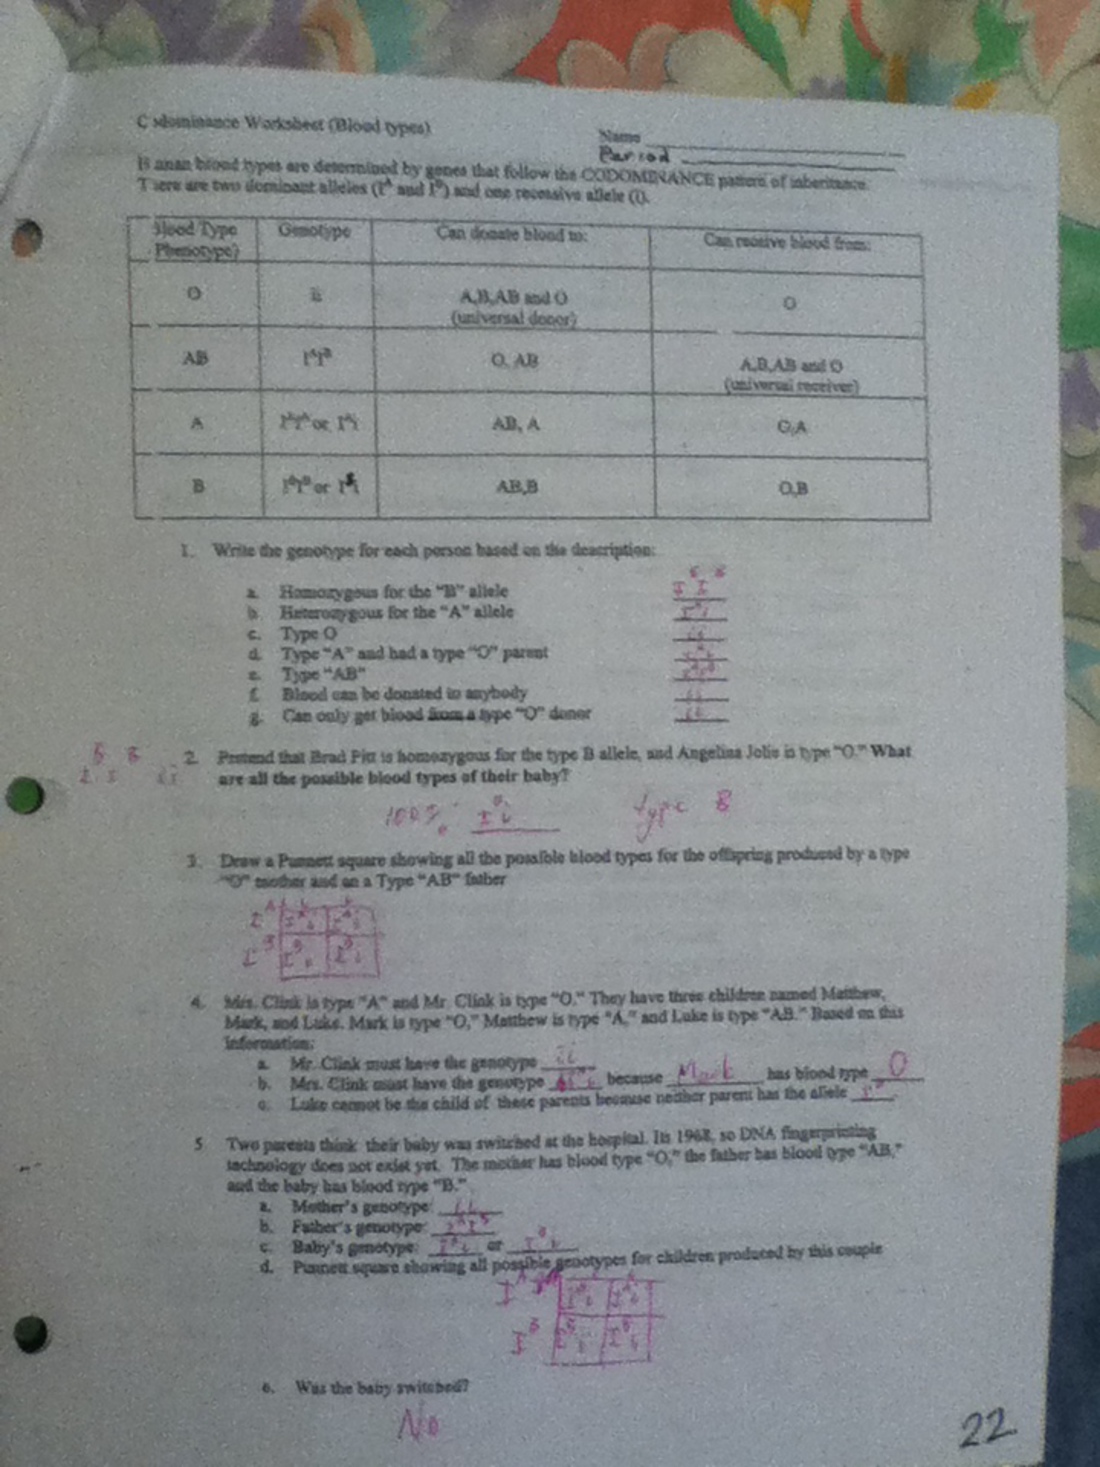 Codominance Worksheet (Blood types)
Name
Period
Human blood types are determined by genes that follow the CODOMINANCE pattern of inheritance.
There are two dominant alleles (I^A and I^B) and one recessive allele (i).
Blood Type (Phenotype) Genotype Can donate blood to: Can receive blood from:
O ii A,B,AB and O (universal donor) O
AB I^AI^B O, AB A,B,AB and O (universal receiver)
A I^AI^A or I^Ai AB, A O,A
B I^BI^B or I^Bi AB,B O,B
1. Write the genotype for each person based on the description:
a. Homozygous for the "B" allele I^B I^B
b. Heterozygous for the "A" allele I^A i
c. Type O ii
d. Type "A" and had a type "O" parent I^A i
e. Type "AB" I^A I^B
f. Blood can be donated to anybody ii
g. Can only get blood from a type "O" donor ii
2. Pretend that Brad Pitt is homozygous for the type B allele, and Angelina Jolie is type "O." What
are all the possible blood types of their baby?
I^B I^B ii
100% I^B i type B
3. Draw a Punnett square showing all the possible blood types for the offspring produced by a type
"O" mother and an a Type "AB" father
i i
I^A I^A i I^A i
I^B I^B i I^B i
4. Mrs. Clink is type "A" and Mr. Clink is type "O." They have three children named Matthew,
Mark, and Luke. Mark is type "O," Matthew is type "A," and Luke is type "AB." Based on this
information:
a. Mr. Clink must have the genotype ii
b. Mrs. Clink must have the genotype I^A i because Mark has blood type O
c. Luke cannot be the child of these parents because neither parent has the allele I^B.
5. Two parents think their baby was switched at the hospital. Its 1968, so DNA fingerprinting
technology does not exist yet. The mother has blood type "O," the father has blood type "AB,"
and the baby has blood type "B."
a. Mother's genotype: ii
b. Father's genotype: I^A I^B
c. Baby's genotype: I^B i or I^B i
d. Punnett square showing all possible genotypes for children produced by this couple
I^A I^A i I^A i
I^B I^B i I^B i
e. Was the baby switched?
No
22